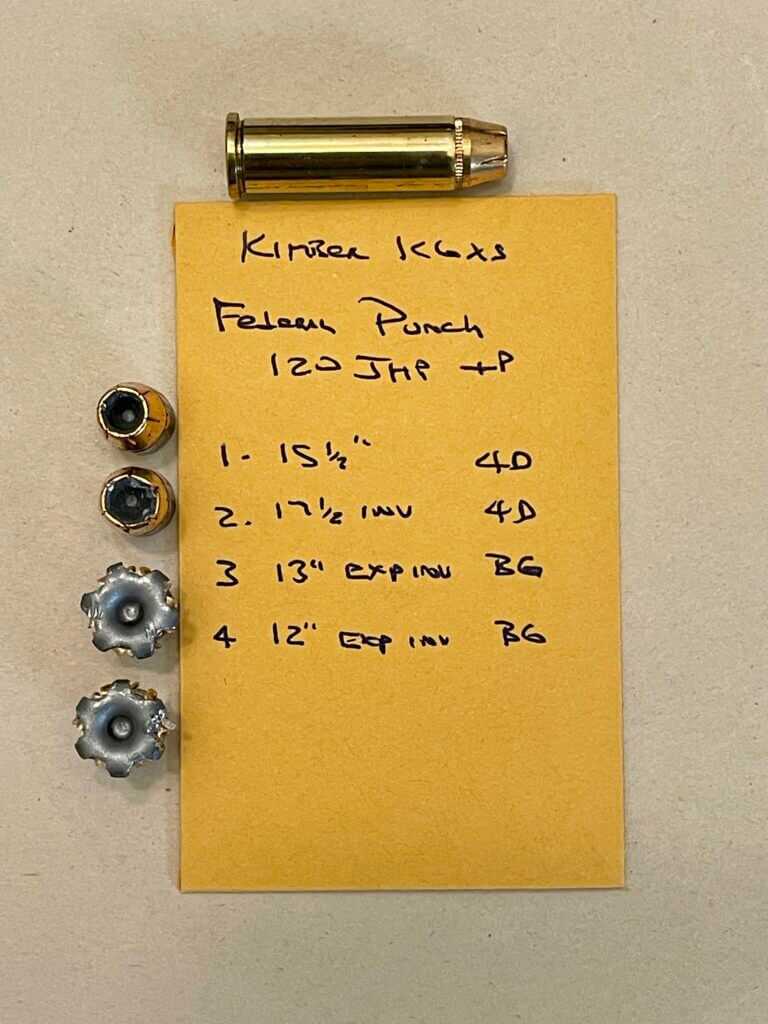 KIMBER K6XS
Federal Punch
120 JHP +P
1. 15 1/2" 4D
2. 17 1/2 INV 4D
3 13" EXP INV BG
4 12" EXP INV BG